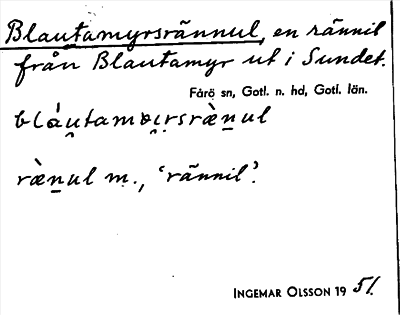 Blautamyrsrännul, en rännil
från Blautamyr ut i Sundet.
Fårö sn, Gotl. n. hd, Gotl. län.
bláu̯tamɷi̯rsrèn̲ul
rèn̲ul m., 'rännil'.
INGEMAR OLSSON 19 51.